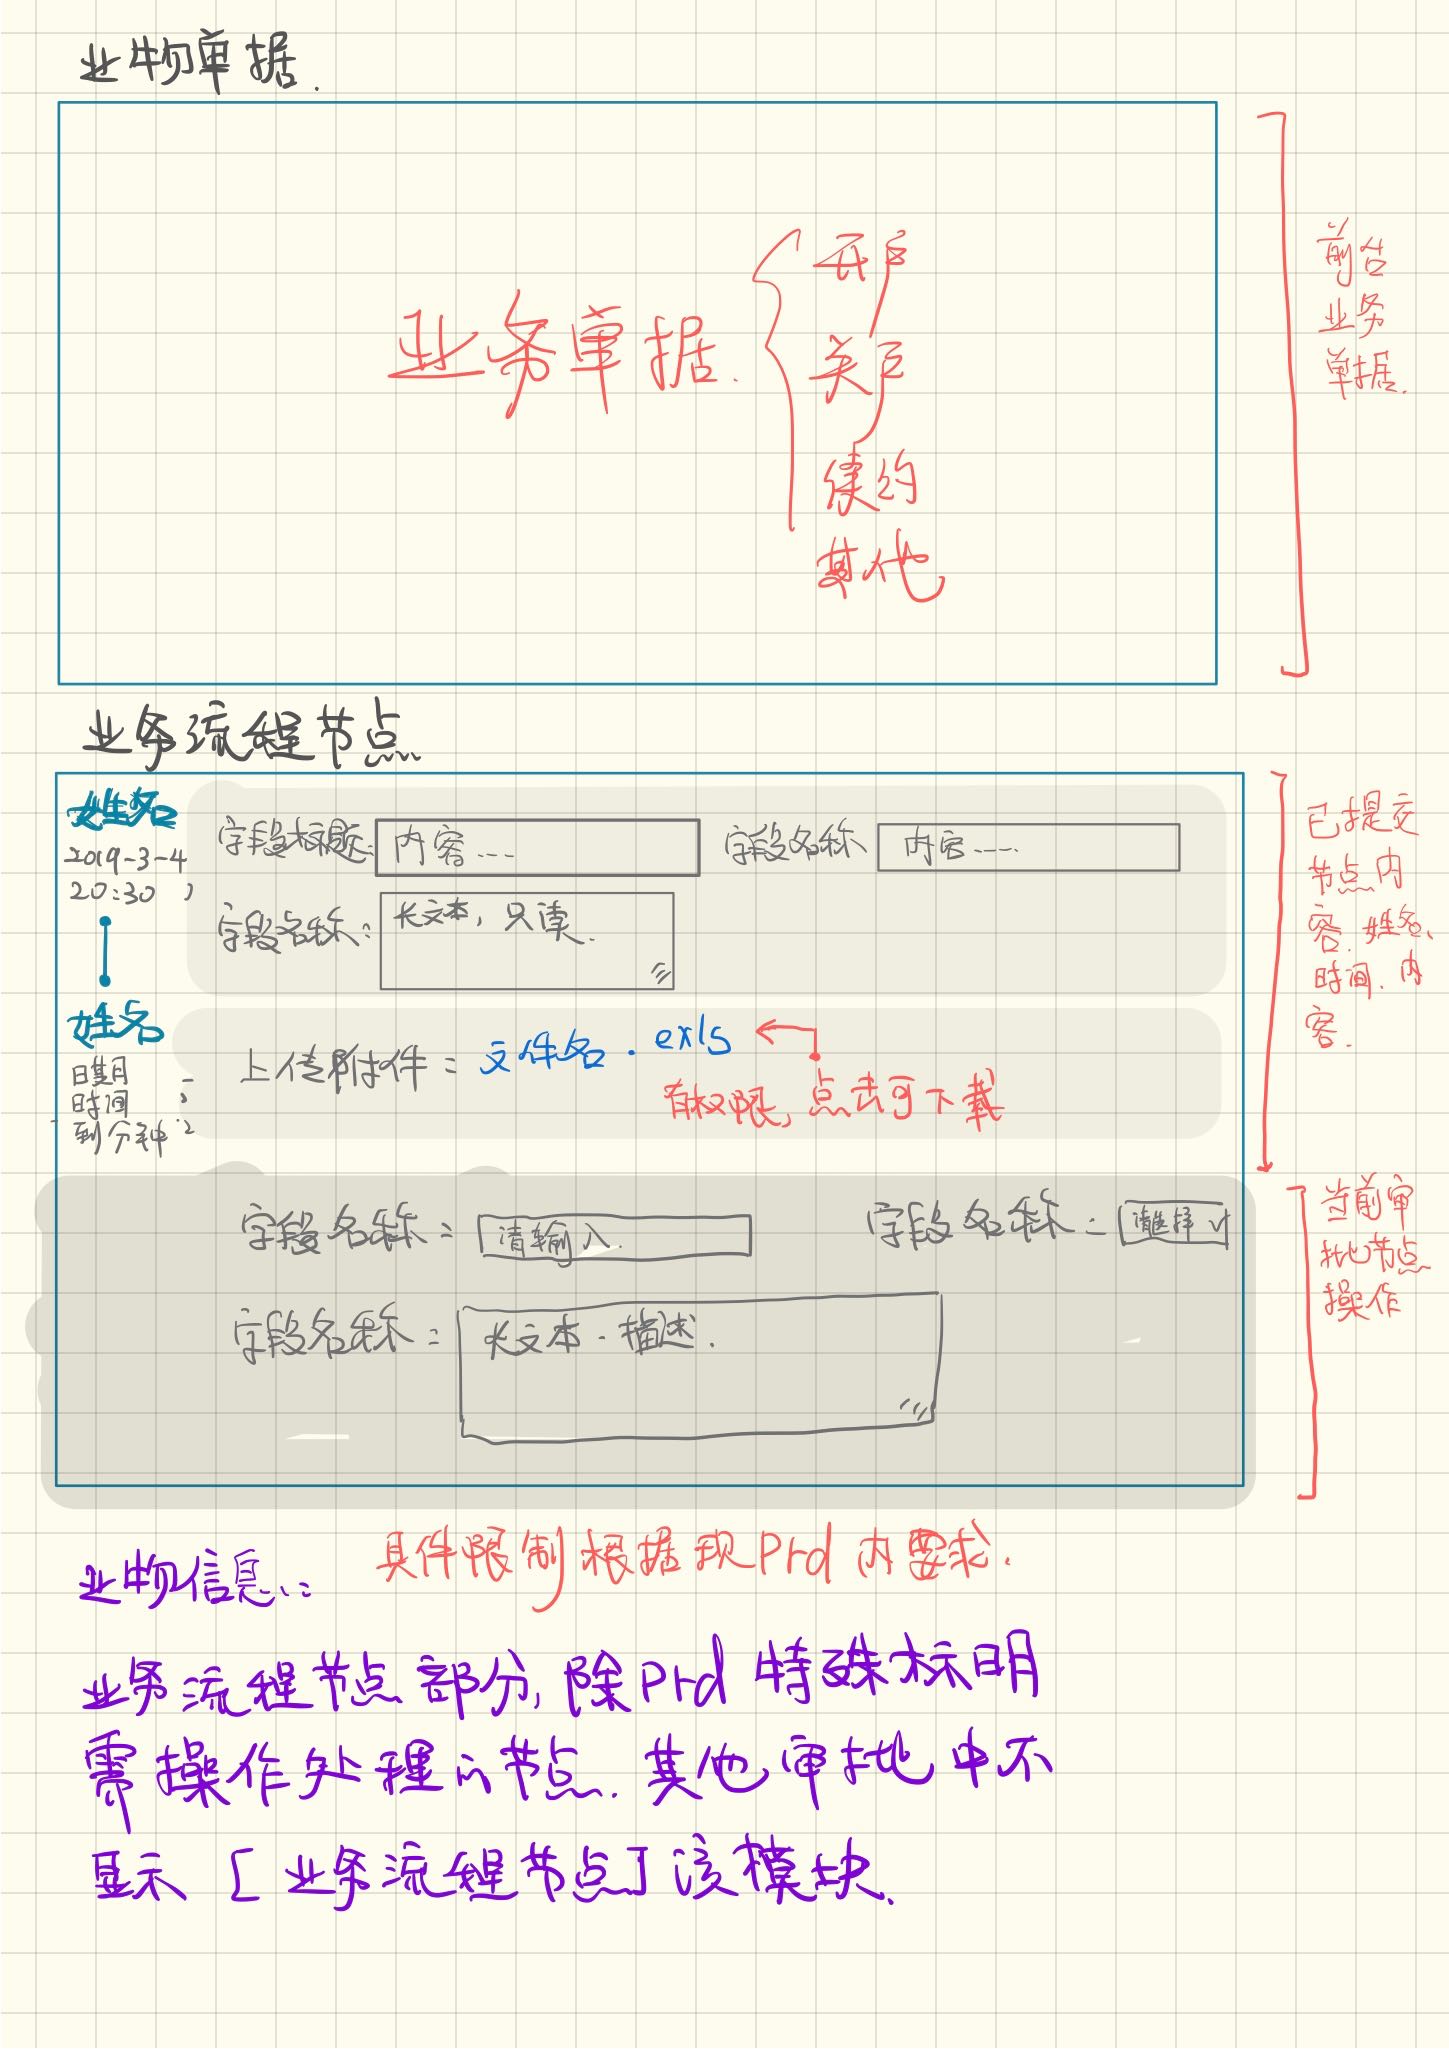 业物单据.
业务单据.
开户
关户
续约
其他
前台
业务
单据.
业务流程节点
姓名
2019-3-4
20:30
字段标题:
内容....
字段名称
内容.....
字段名称:
长文本，只读.
姓名
日期
时间
到分钟
上传附件: 文件名.exls
有权限，点击可下载
已提交
节点内
容.姓名、
时间.内
容.
字段名称:
请输入.
字段名称:
请选择
字段名称:
长文本.描述.
当前审
批节点
操作
业物信息..:
具件限制根据现Prd内要求.
业务流程节点部分,除Prd特殊标明
需操作处理的节点.其他审批中不
显示[业务流程节点]该模块.